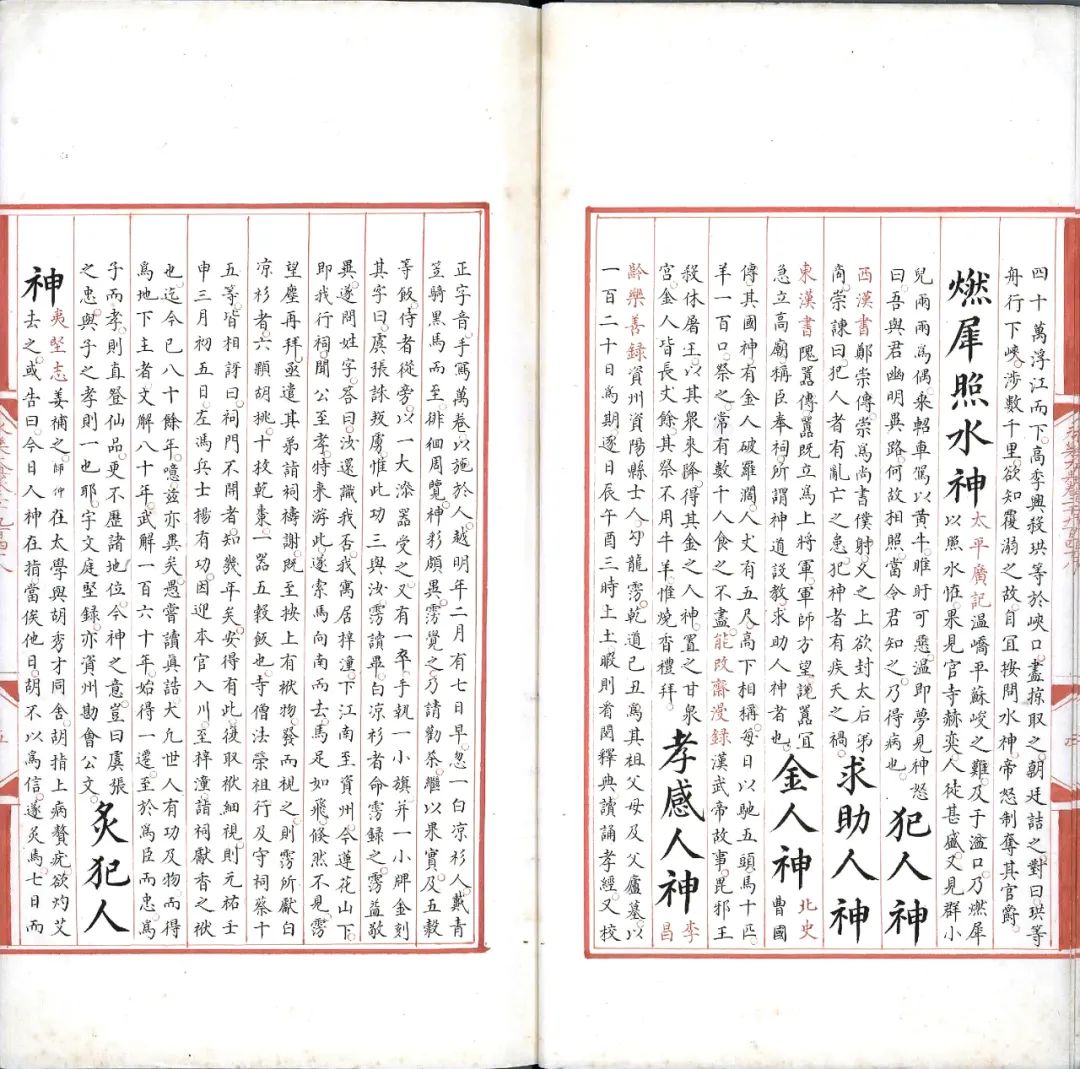 四十萬浮江而下高季興殺珙等於峽口盡掠取之朝廷詰之對曰珙等
舟行下峽涉數千里欲知覆溺之故自宜按問水神帝怒制奪其官爵
燃犀照水神
太平廣記溫嶠平蘇峻之難及于湓口乃燃犀
以照水恠果見官寺赫奕人徒甚盛又見群小
兒兩兩爲偶乘軺車駕以黃牛睢盱可惡溫即夢見神怒
曰吾與君幽明異路何故相照當令君知之乃得病也
犯人神
西漢書鄭崇傳崇爲尚書僕射久之上欲封太后弟
商崇諫曰犯人者有亂亡之患犯神者有疾夭之禍
求助人神
東漢書隗囂傳囂既立爲上將軍軍師方望說囂宜
急立高廟稱臣奉祠所謂神道設教求助人神者也
金人神
北史
曹國
傳其國神有金人破羅濶人丈有五尺高下相稱每日以馳五頭馬十匹
羊一百口祭之常有數千人食之不盡能改齋漫錄漢武帝故事毘邪王
殺休屠王以其衆來降得其金之人神置之甘泉
宮金人皆長丈餘其祭不用牛羊惟燒香禮拜
孝感人神
李
昌
齡樂善録資州資陽縣士人勾龍雱乾道己丑爲其祖父母及父廬墓以
一百二十日爲期逐日辰午酉三時上土暇則肴閱釋典讀誦孝經又校
正字音手寫萬卷以施於人越明年二月有七日早忽一白凉衫人戴青
笠騎黑馬而至徘徊周覽神彩頗異雱覺之乃請勸茶繼以果實及五穀
等飯侍者從旁以一大漆器受之又有一卒手執一小旗并一小牌金刻
其字曰虞張誅叛虜惟此功三與汝雱讀畢白凉衫者命雱録之雱益敬
異遂問姓字答曰汝還識我否我寓居梓潼下江南至資州今蓮花山下
即我行祠聞公至孝特來游此遂索馬向南而去馬足如飛倏然不見雱
望塵再拜亟遣其弟詣祠禱謝既至按上有袱物發而視之則雱所獻白
凉衫者六顆胡桃十枚乾棗一器五穀飯也寺僧法榮祖行及守祠蔡十
五等皆相訝曰祠門不開者知幾年矣安得有此復取袱細視則元祐壬
申三月初五日左馮兵士揚有功因迎本官入川至梓潼詣祠獻香之袱
也迄今已八十餘年噫茲亦異矣愚嘗讀眞誥大凡世人有功及物而得
爲地下主者文解八十年武解一百六十年始得一遷至於爲臣而忠爲
子而孝則直登仙品更不歷諸地位今神之意豈曰虞張
之忠與子之孝則一也耶宇文庭堅録亦資州勘會公文
炙犯人
神
夷堅志姜補之師仲在太學與胡秀才同舍胡指上病贅疣欲灼艾
去之或告曰今日人神在指當俟他日胡不以爲信遂灸焉七日而